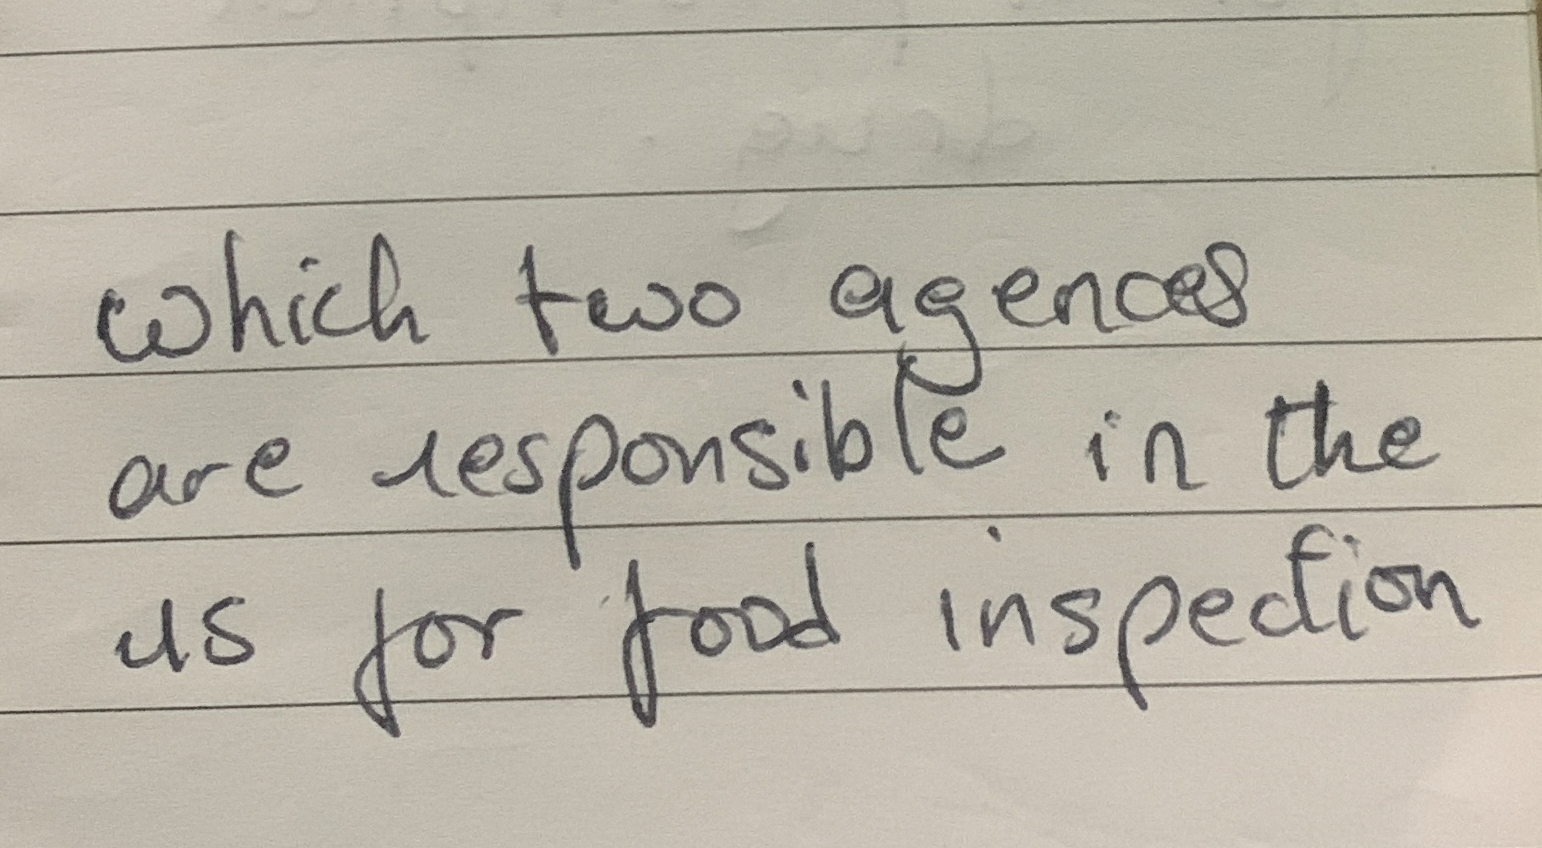 which two agences
are responsible in the
us for food inspection